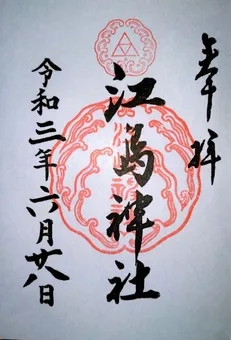 奉拝
江島神社
令和三年六月廿八日